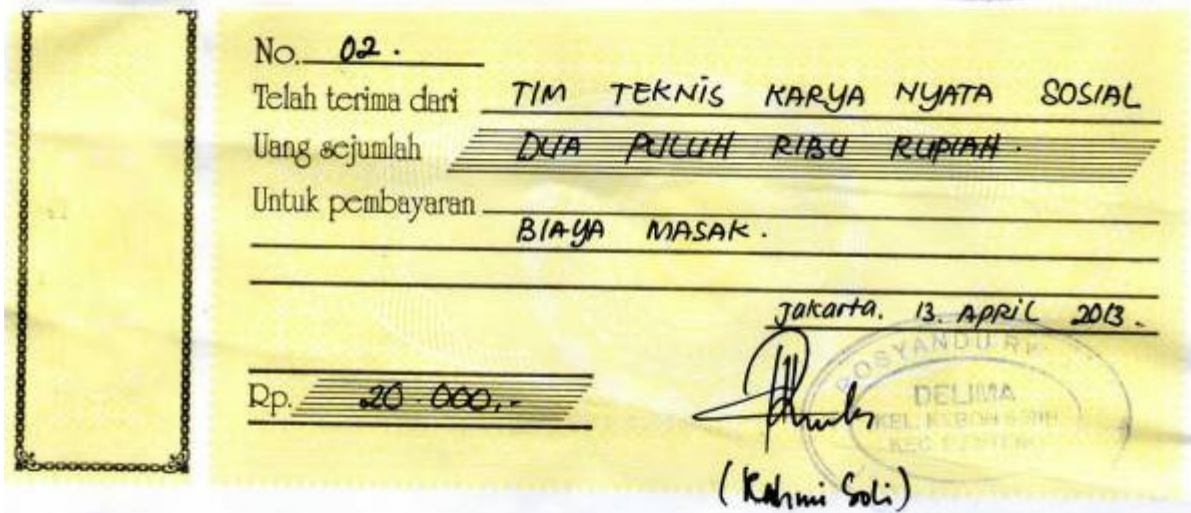 No. 02.
Telah terima dari TIM TEKNIS KARYA NYATA SOSIAL
Uang sejumlah DUA PULUH RIBU RUPIAH.
Untuk pembayaran
BIAYA MASAK.
Jakarta. 13. APRIL 2013.
POSYANDU
DELIMA
KEL.
KEC.
Rp. 20.000,-